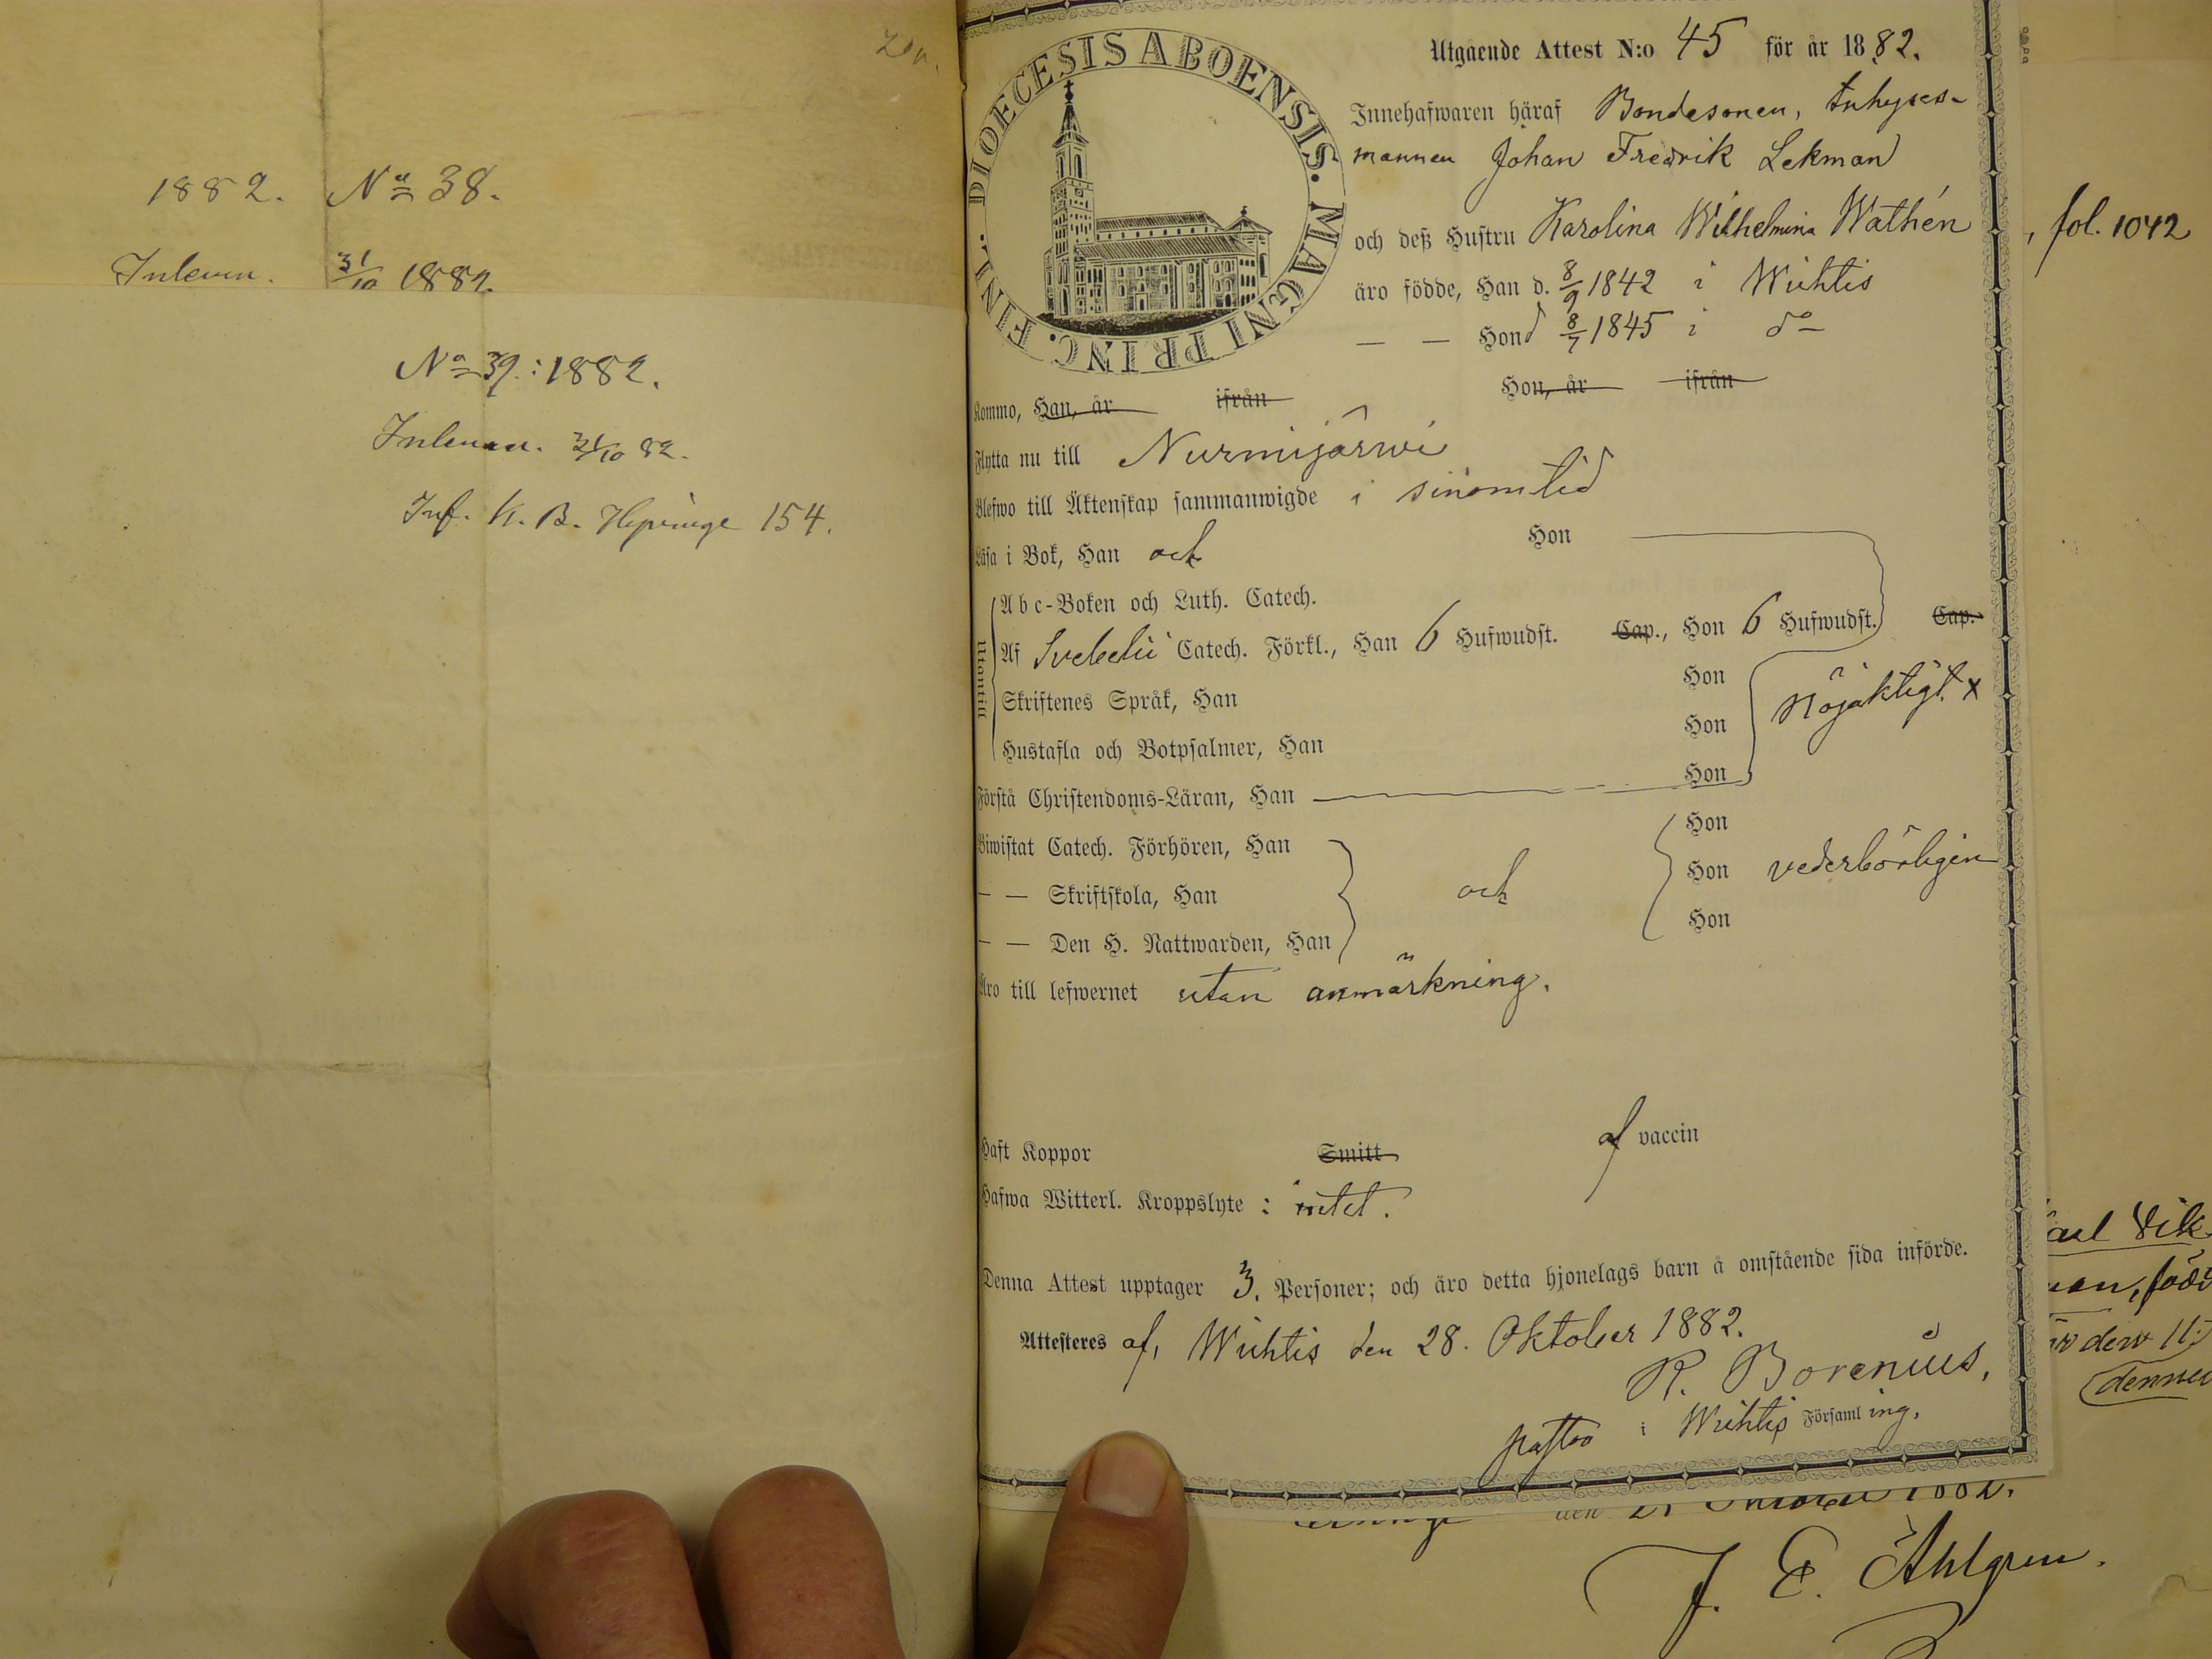 1882. No 38.
Inlemn. 31/10 1882.
No 39 : 1882.
Inlemn. 31/10 82.
Inf. K. B. 154.
DIOECESIS ABOENSIS. MAGNI PRINC. FINL.
Utgående Attest N:o 45 för år 1882.
Innehafwaren häraf Bondesonen, Inhyses-
mannen Johan Fredrik Lekman
och deß Hustru Karolina Wilhelmina Wathén
, fol. 1042
äro födde, Han d. 8/9 1842 i Wichtis
— — Hon d 8/7 1845 i do
Kommo, Han, år ifrån Hon, år ifrån
Flytta nu till Nurmijärwi
Blefwo till Äktenskap sammanwigde i sinom tid
Läsa i Bok, Han och Hon
Utantill
Abc-Boken och Luth. Catech.
Af Svebelii Catech. Förkl., Han 6 Hufwudst. Cap., Hon 6 Hufwudst. Cap.
Hon
Skriftenes Språk, Han Hon
nöjaktigt. x
Hustafla och Botpsalmer, Han Hon
Förstå Christendoms-Läran, Han
Biwistat Catech. Förhören, Han Hon
— — Skriftskola, Han och Hon vederbörligen
— — Den H. Nattwarden, Han Hon
Äro till lefwernet utan anmärkning.
Haft Koppor Smitt af vaccin
Hafwa Witterl. Kroppslyte : intet.
Denna Attest upptager 3. Personer; och äro detta hjonelags barn å omstående sida införde.
Attesteres af, Wichtis den 28. Oktober 1882.
R. Borenius,
pastor i Wichtis Församling.
den 21 Oktober 1882.
J. E. Ahlgren.